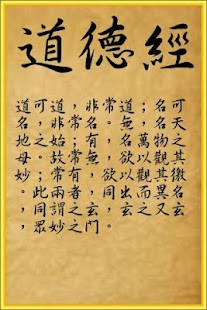 道德經
道可道，非常道；名可
名，非常名。無名，天
地之始；有名，萬物之
母。故常無，欲以觀其
妙；常有，欲以觀其徼
。此兩者同出而異名
，同謂之玄，玄之又玄
，眾妙之門。